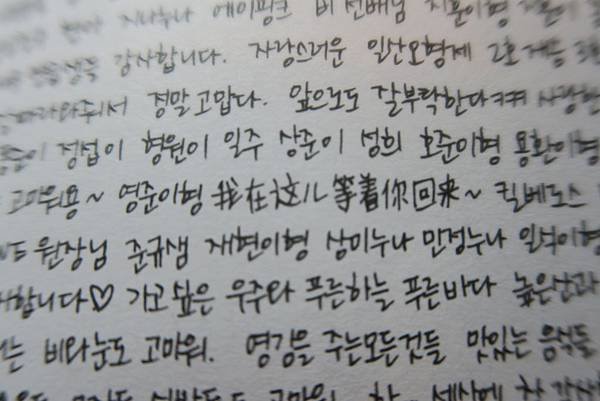 지나누나 에이핑크 비 선배님 지훈이형
감사합니다. 자랑스러운 일산오형제 2호 재능
따라와줘서 정말 고맙다. 앞으로도 잘부탁한다ㅋㅋㅋ 사랑한
정섭이 형원이 일주 상준이 성희 호준이형 용환이형
고마워용~ 영준이형 我在这儿等着你回来~ 킬베로스
원장님 준규쌤 재현이형 상미누나 민정누나 일석이형
합니다♡ 가고싶은 우주와 푸른하늘 푸른바다 높은산과
는 비와눈도 고마워. 영감을 주는모든것들 맛있는 음식들
고마워